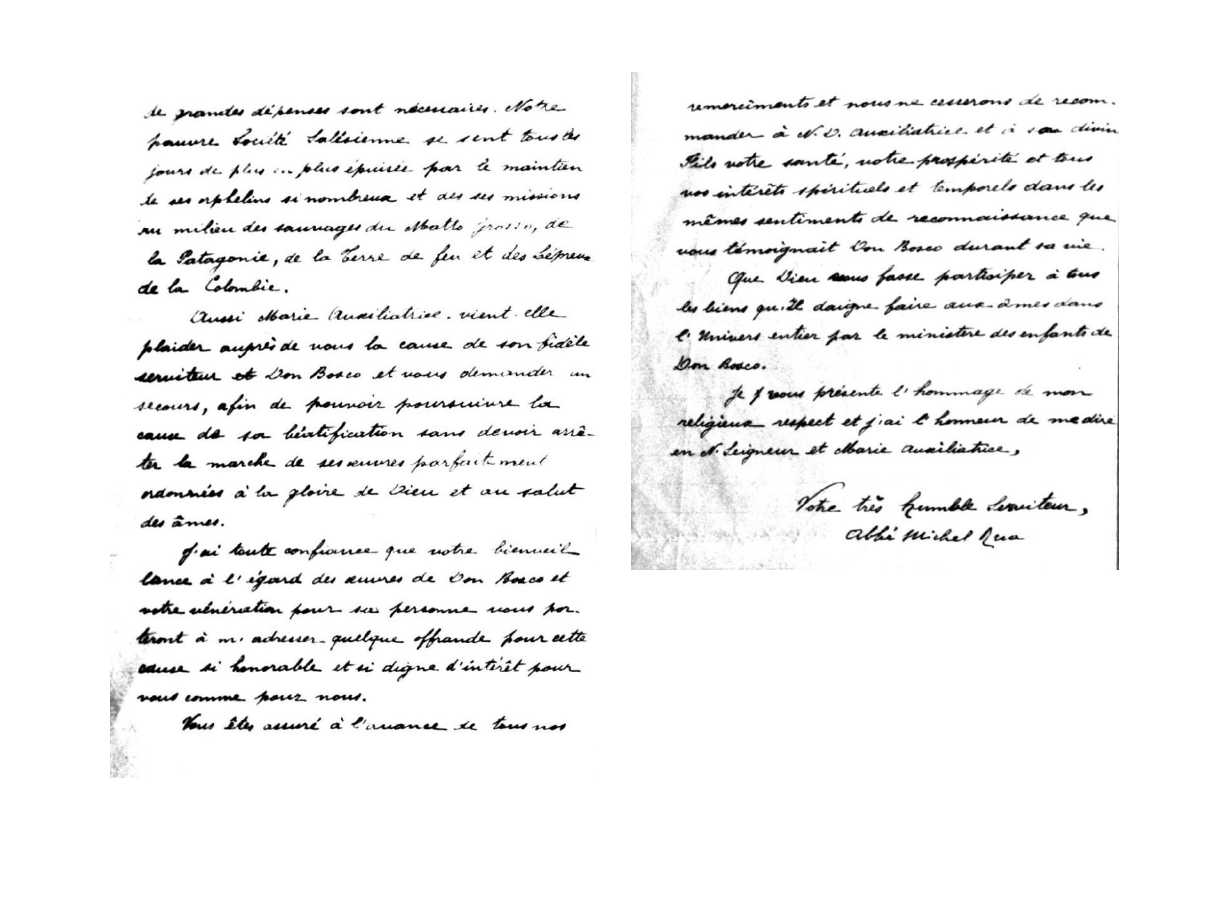 de grandes dépenses sont nécessaires. Notre
pauvre Société Salésienne se sent tous les
jours de plus en plus épuisée par le maintien
de ses orphelins si nombreux et des ses missions
au milieu des sauvages du Matto grosso, de
la Patagonie, de la Terre de feu et des Lépreux
de la Colombie.
Aussi Marie Auxiliatrice vient-elle
plaider auprès de vous la cause de son fidèle
serviteur et Don Bosco et vous demander un
secours, afin de pouvoir poursuivre la
cause de sa béatification sans devoir arrê-
ter la marche de ses œuvres parfaitement
ordonnées à la gloire de Dieu et au salut
des âmes.
J'ai toute confiance que votre bienveil-
lance à l'égard des œuvres de Don Bosco et
votre vénération pour sa personne vous por-
teront à m'adresser quelque offrande pour cette
cause si honorable et si digne d'intérêt pour
vous comme pour nous.
Vous êtes assuré à l'avance de tous nos
remerciments et nous ne cesserons de recom-
mander à N. D. Auxiliatrice et à son divin
Fils votre santé, votre prospérité et tous
vos intérêts spirituels et temporels dans les
mêmes sentiments de reconnaissance que
vous témoignait Don Bosco durant sa vie.
Que Dieu vous fasse participer à tous
les biens qu'Il daigne faire aux âmes dans
l'Univers entier par le ministère des enfants de
Don Bosco.
Je vous présente l'hommage de mon
religieux respect et j'ai l'honneur de me dire
en N. Seigneur et Marie Auxiliatrice,
Votre très humble Serviteur,
Abbé Michel Rua